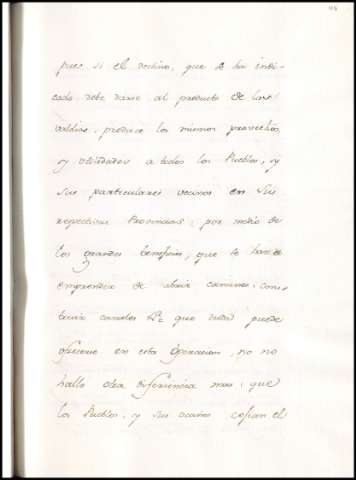 pues si el destino, que se ha indi-
cado debe darse al producto de los
valdios, produce los mismos provechos,
y utilidades a todos los Pueblos, y
sus particulares vecinos en sus
respectivas Provincias, por medio de
los grandes beneficios, que se han de
emprender de abrir caminos, cons-
truir canales &c que duda puede
ofrecerse en esta Operacion, yo no
hallo otra diferencia mas, que
los Pueblos, y sus vecinos cesan el